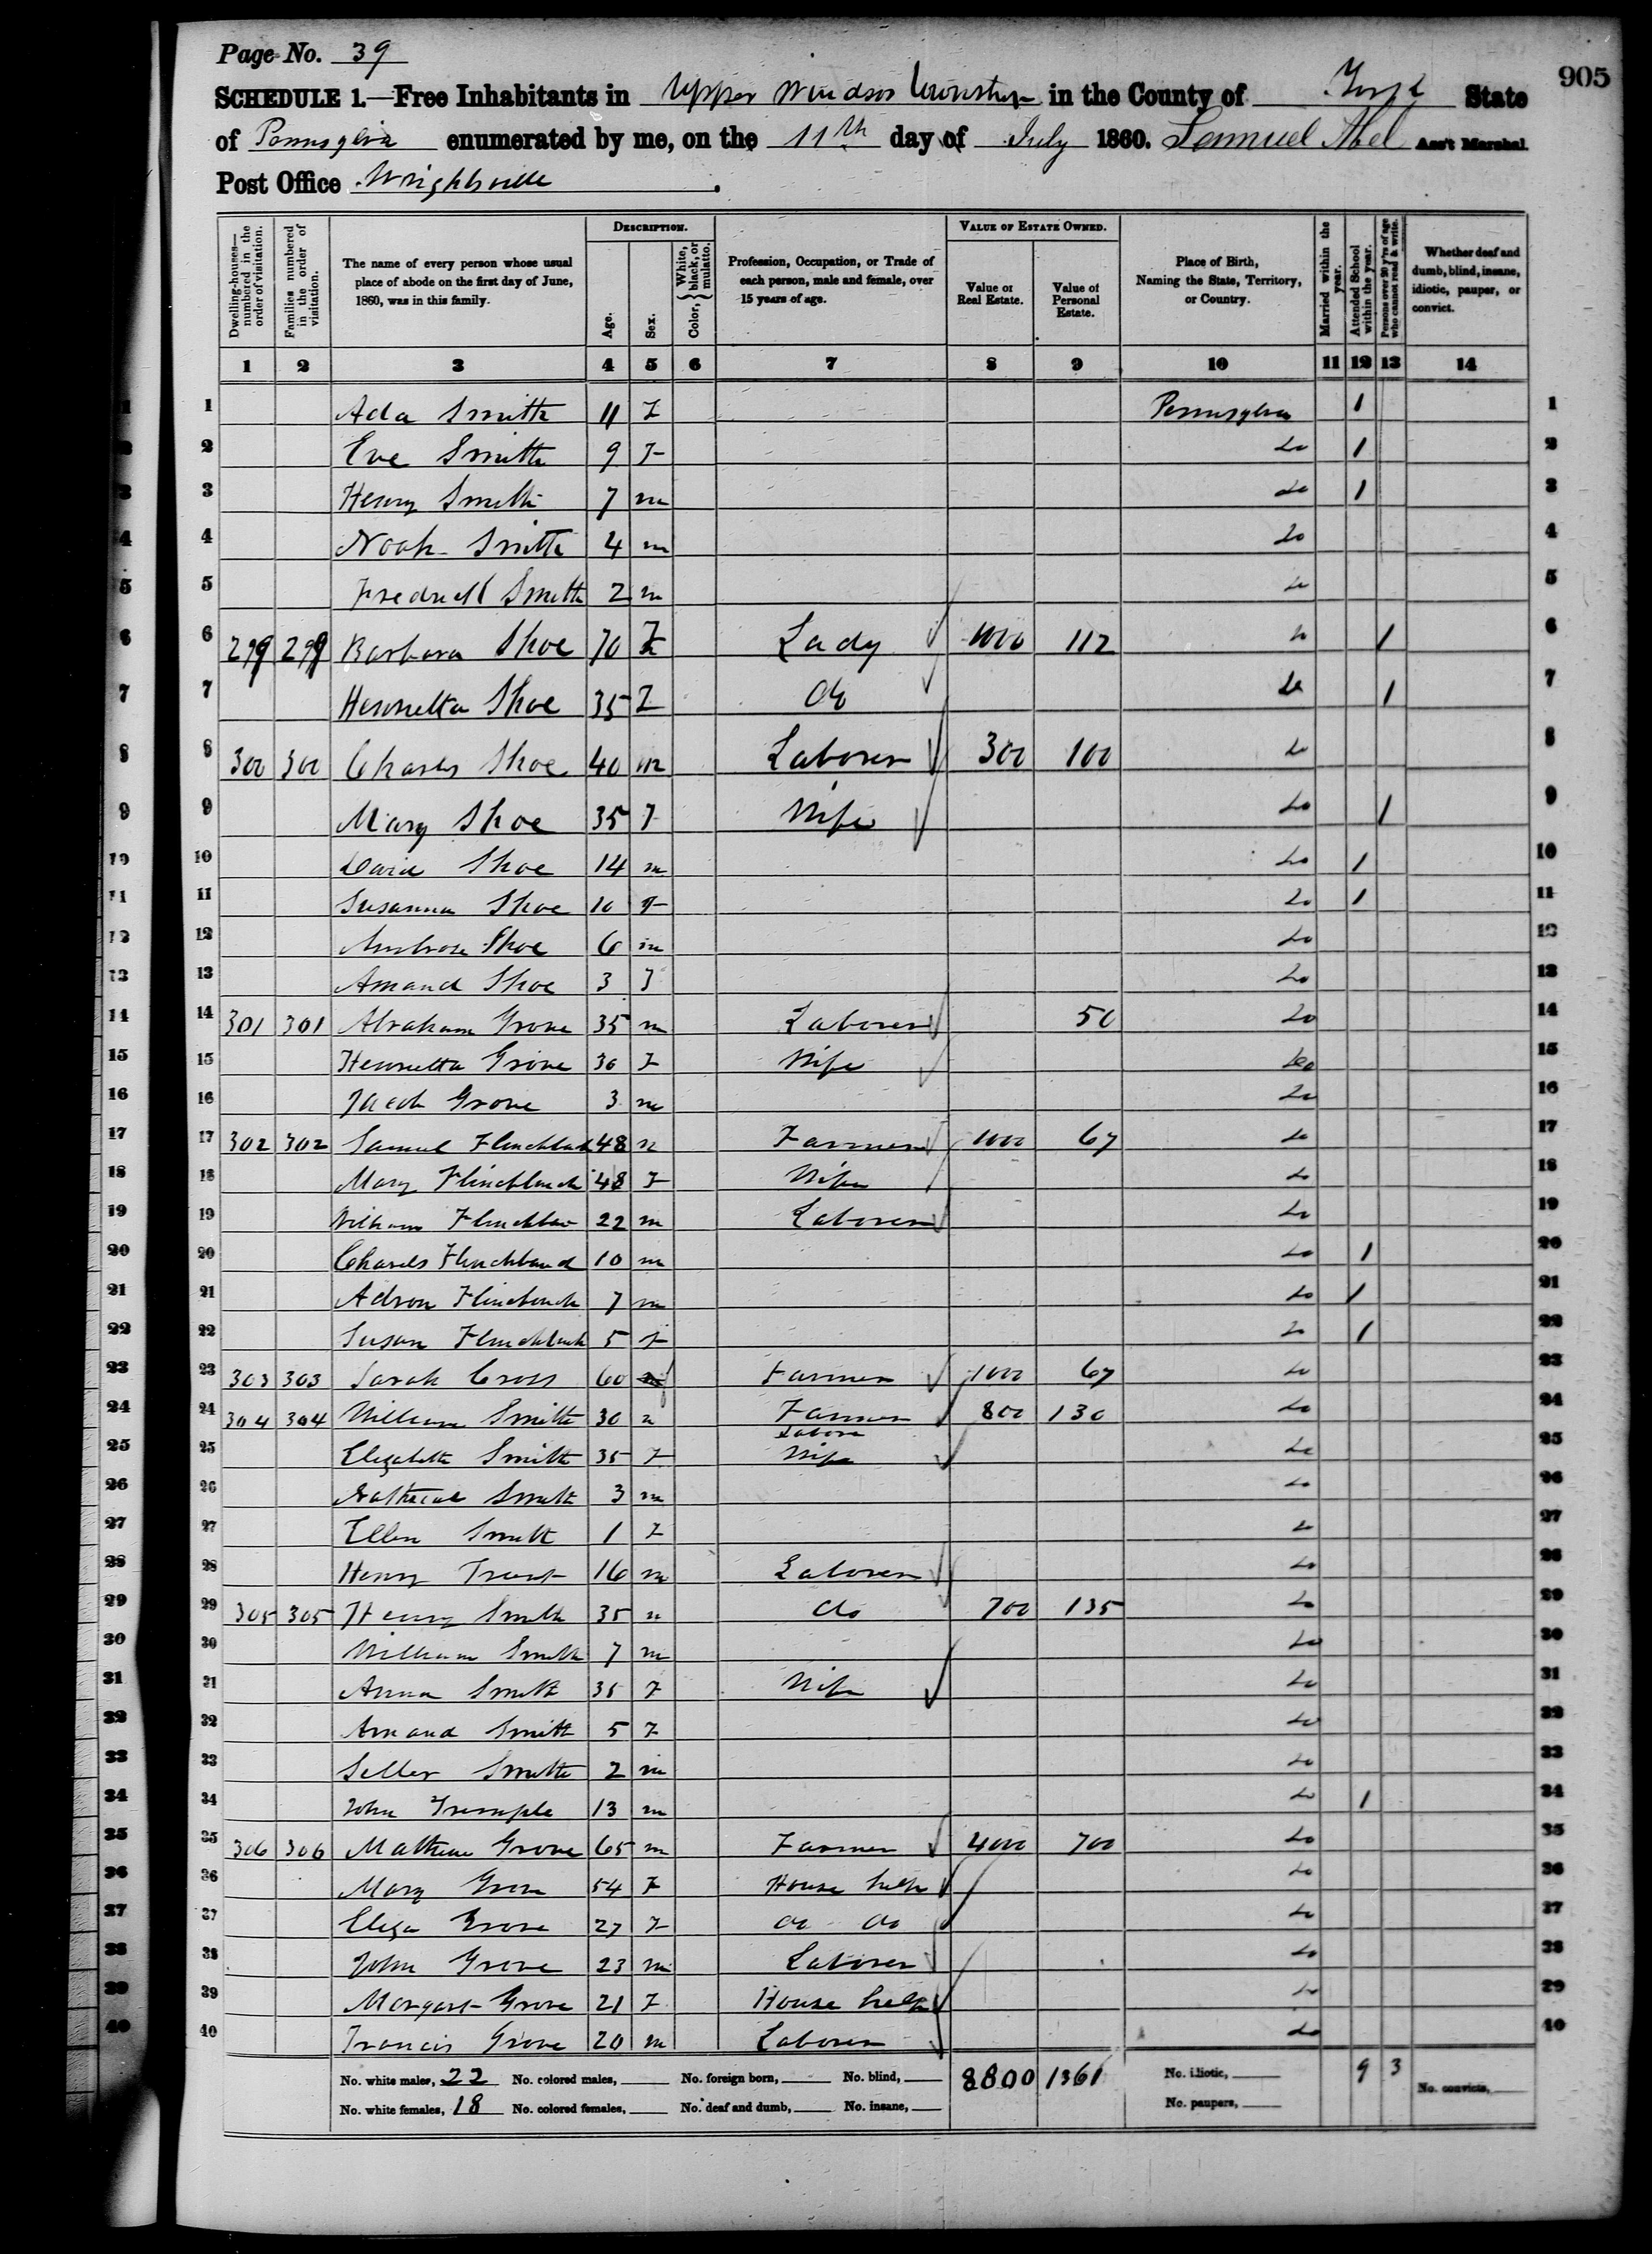 Page No. 39
905
SCHEDULE 1.—Free Inhabitants in Upper Windsor Township in the County of York State
of Pennsylvia enumerated by me, on the 11th day of July 1860. Samuel Abel Ass't Marshal
Post Office Wrightsville.
Dwelling-houses—numbered in the order of visitation.
Families numbered in the order of visitation.
The name of every person whose usual place of abode on the first day of June, 1860, was in this family.
DESCRIPTION.
Age.
Sex.
Color, { White, black, or mulatto.
Profession, Occupation, or Trade of each person, male and female, over 15 years of age.
VALUE OF ESTATE OWNED.
Value of Real Estate.
Value of Personal Estate.
Place of Birth, Naming the State, Territory, or Country.
Married within the year.
Attended School within the year.
Persons over 20 y'rs of age who cannot read & write.
Whether deaf and dumb, blind, insane, idiotic, pauper, or convict.
1 2 3 4 5 6 7 8 9 10 11 12 13 14
1 Ada Smith 11 F 1 1
2 Eve Smith 9 F do 1 2
3 Henry Smith 7 m do 1 3
4 Noah Smith 4 m do 4
5 Smith 2 m do 5
6 299 299 Barbara Shoe 70 F Lady 1000 112 do 1 6
7 Henrietta Shoe 35 F do do 1 7
8 300 300 Charles Shoe 40 m Laborer 300 100 do 8
9 Mary Shoe 35 F Wife do 1 9
10 David Shoe 14 m do 1 10
11 Susanna Shoe 10 F do 1 11
12 Ambrose Shoe 6 m do 12
13 Amand Shoe 3 F do 13
14 301 301 Abraham Grove 35 m Laborer 50 do 14
15 Henrietta Grove 30 F Wife do 15
16 Jacob Grove 3 m do 16
17 302 302 Samuel 48 m Farmer 1000 67 do 17
18 Mary 48 F Wife do 18
19 William 22 m Laborer do 19
20 Charles 10 m do 1 20
21 7 m do 1 21
22 Susan 5 F do 1 22
23 303 303 Sarah Cross 60 f Farmer 1000 67 do 23
24 304 304 William Smith 30 m Farmer 800 130 do 24
Labore
25 Elizabeth Smith 35 F Wife do 25
26 Smith 3 m do 26
27 Ellen Smith 1 F do 27
28 Henry 16 m Laborer do 28
29 305 305 Henry Smith 35 m do 700 135 do 29
30 William Smith 7 m do 30
31 Anna Smith 35 F Wife do 31
32 Amand Smith 5 F do 32
33 Smith 2 m do 33
34 John 13 m do 1 34
35 306 306 Mathew Grove 65 m Farmer 4000 700 do 35
36 Mary Grove 54 F House help do 36
37 Eliza Grove 27 F do do do 37
38 John Grove 23 m Laborer do 38
39 Margart Grove 21 F House help do 39
40 Francis Grove 20 m Laborer do 40
No. white males, 22 No. colored males, No. foreign born, No. blind, 8800 1361 No. idiotic, 9 3 No. convicts,
No. white females, 18 No. colored females, No. deaf and dumb, No. insane, No. paupers,